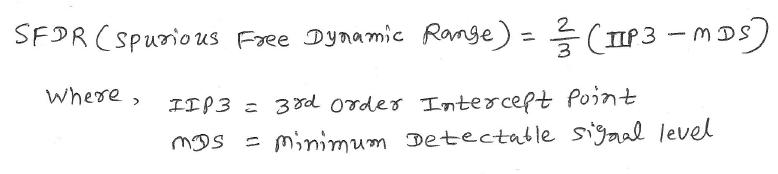 SFDR (Spurious Free Dynamic Range) = 2/3 (IIP3 - MDS)
Where, IIP3 = 3rd order Intercept Point
MDS = Minimum Detectable Signal level